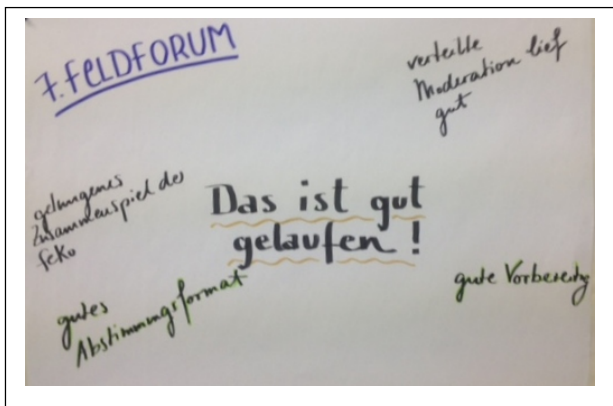 7. FELDFORUM
verteilte
Moderation lief
gut
gelungenes
Zusammenspiel der
FeKo
Das ist gut
gelaufen!
gutes
Abstimmungsformat
gute Vorbereitg